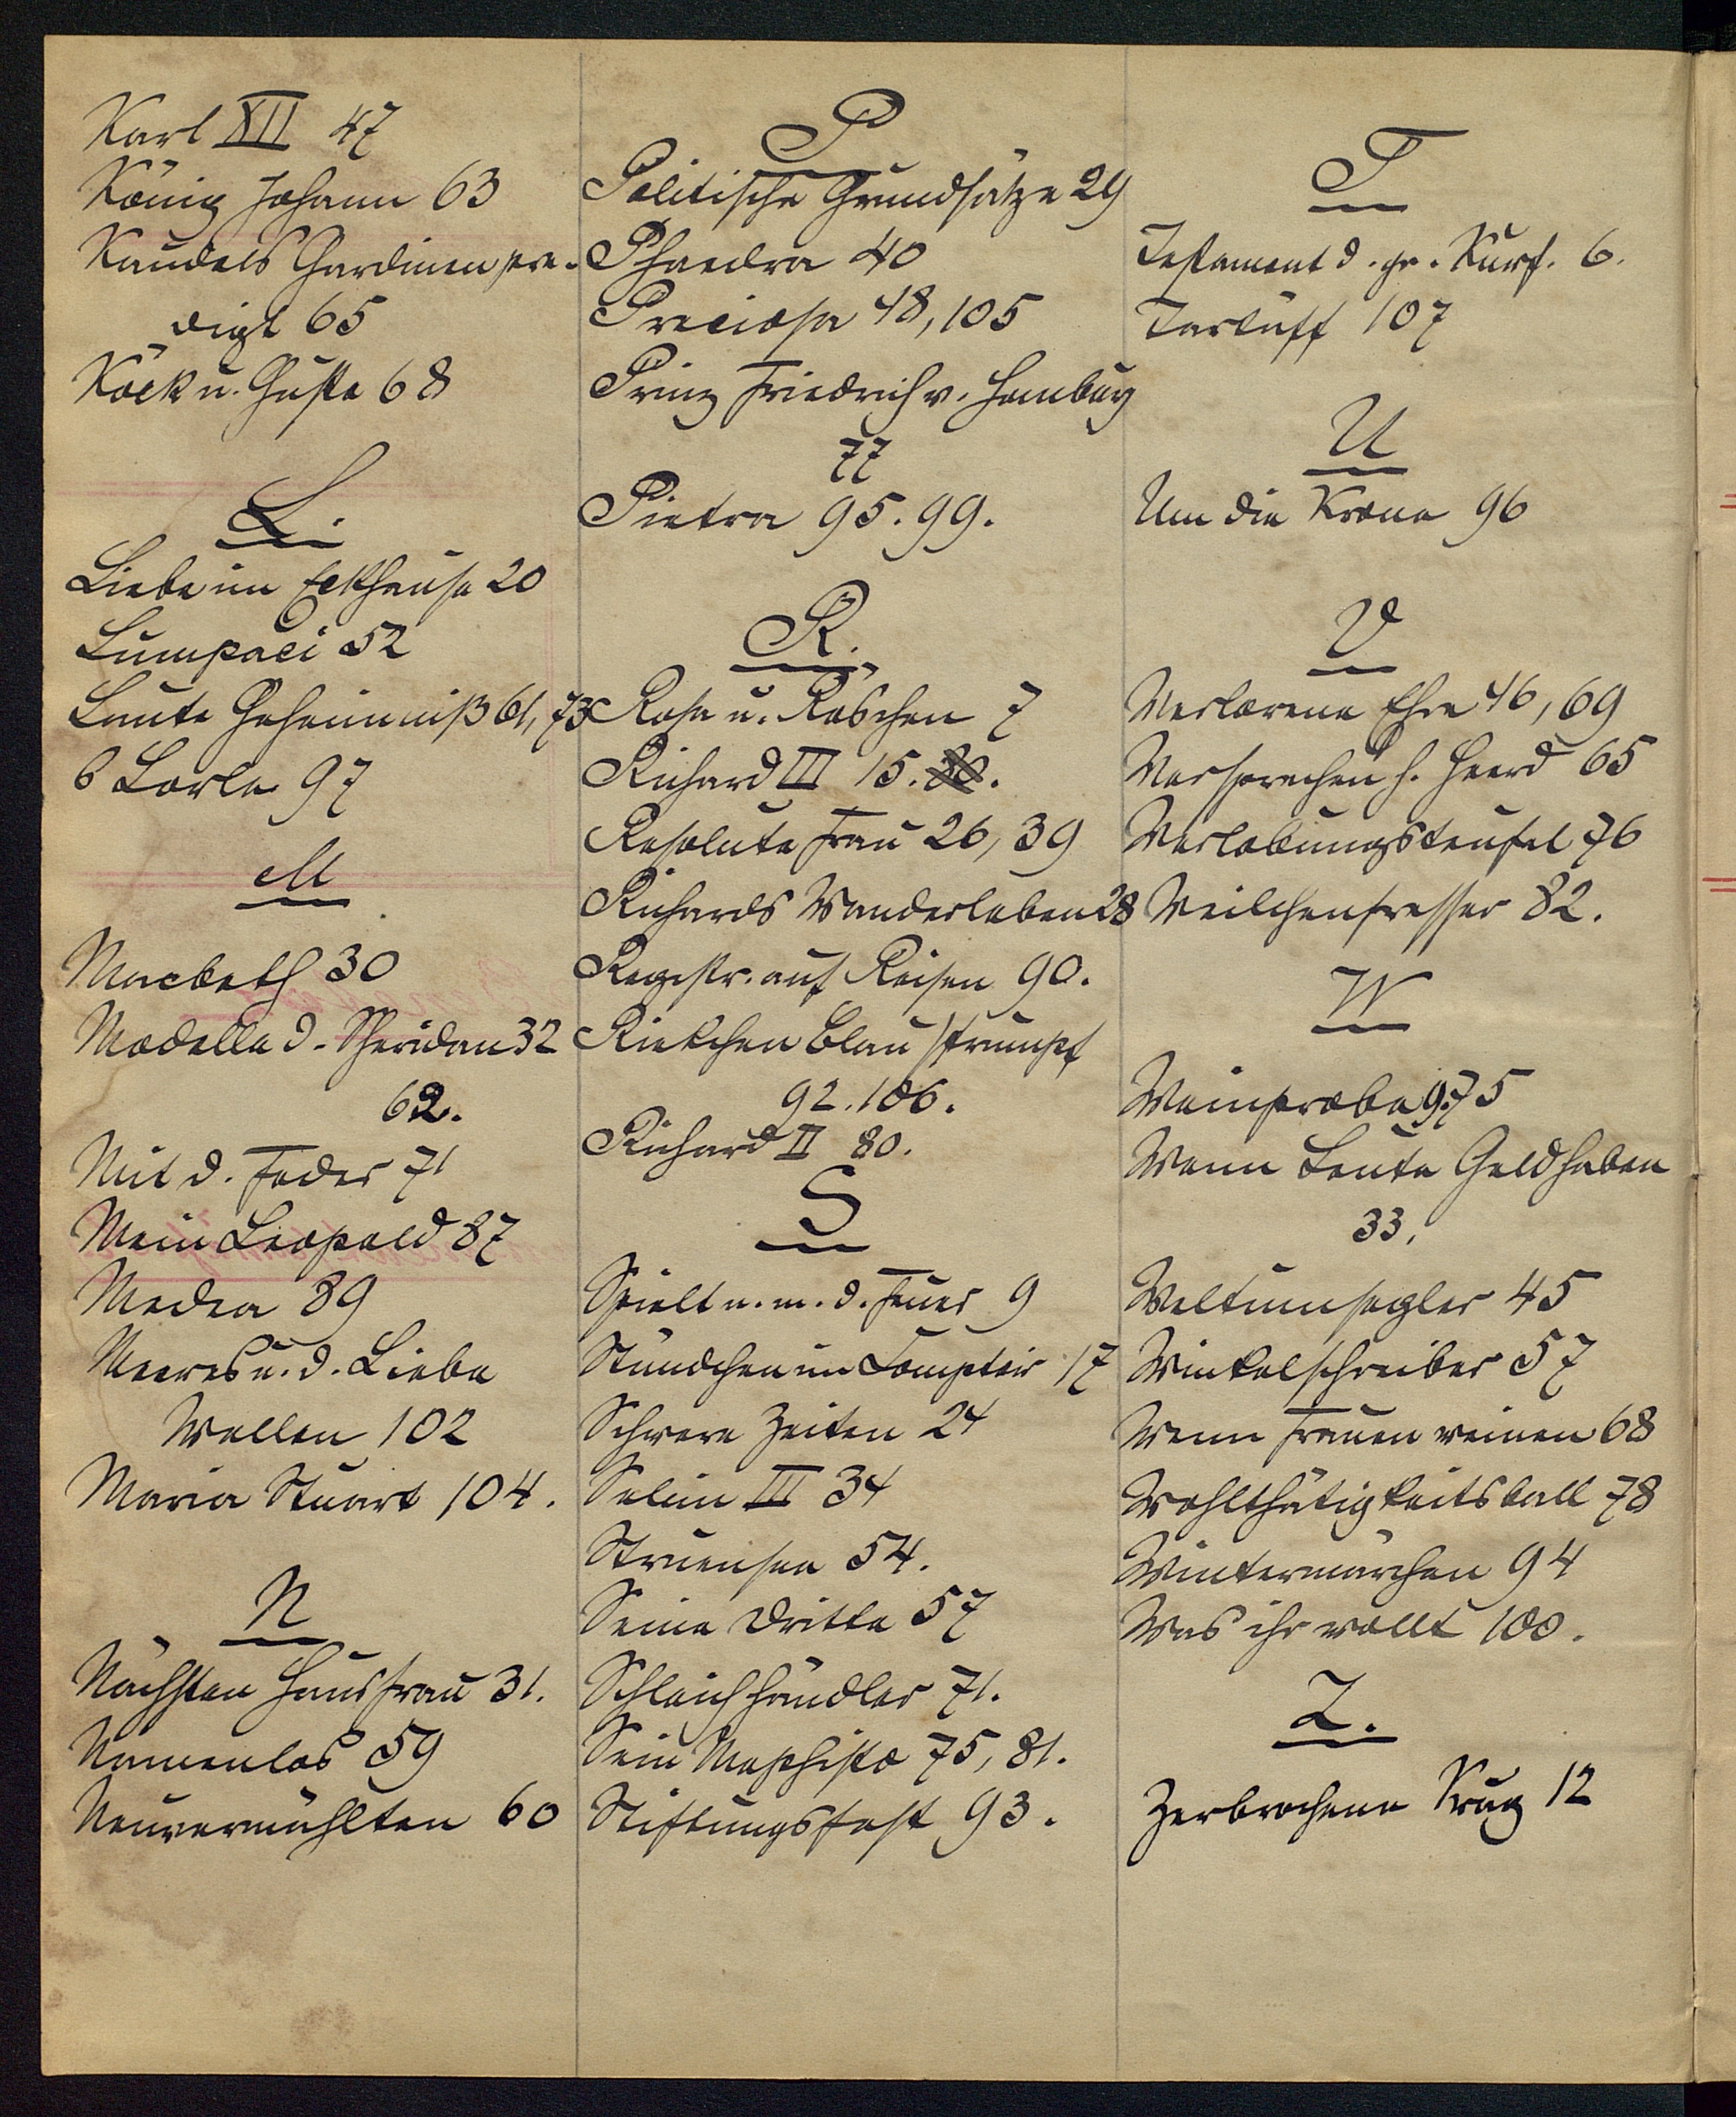 Karl XII 47
König Johann 63
Kaudels Gardinenpre-
digt 65
Köck u. Guste 68
L.
Liebe im Eckhause 20
Lumpaci 52
Laute Geheimniß 61, 73
6 Lorle 97
M
Macbeth 30
Modelle d. Sheridan 32
62.
Mit d. Feder 71
Mein Leopold 87
Medea 89
Meeres u. d. Liebe
Wellen 102
Maria Stuart 104.
N
Nächsten Hausfrau 31.
Namenlos 59
Neuvermählten 60
P
Politische Grundsätze 29
Phaedra 40
Preciosa 48, 105
Prinz Friedrich v. Homburg
77
Pietra 95. 99.
R.
Rose u. Röschen 7
Richard III 15. 30.
Resolute Frau 26, 39
Richards Wanderleben 28
Registr. auf Reisen 90.
Riekchen Blaustrumpf
92. 106.
Richard II 80.
S
Spielt n. m. d. Feuer 9
Stündchen im Comptoir 17
Schwere Zeiten 24
Selim III 34
Struensee 54.
Seine Dritte 57
Schleichhändler 71.
Sein Mephisto 75, 81.
Stiftungsfest 93.
T
Testament d. gr. Kurf. 6.
Tartüff 107
U
Um die Krone 96
V
Verlorene Ehre 46, 69
Versprechen h. Heerd 65
Verlobungsteufel 76
Veilchenfresser 82.
W
Weinprobe 9. 75
Wenn Leute Geld haben
33.
Weltumsegler 45
Winkelschreiber 57
Wenn Frauen weinen 68
Wohlthätigkeitsball 78
Wintermärchen 94
Was ihr wollt 100.
Z.
Zerbrochene Krug 12